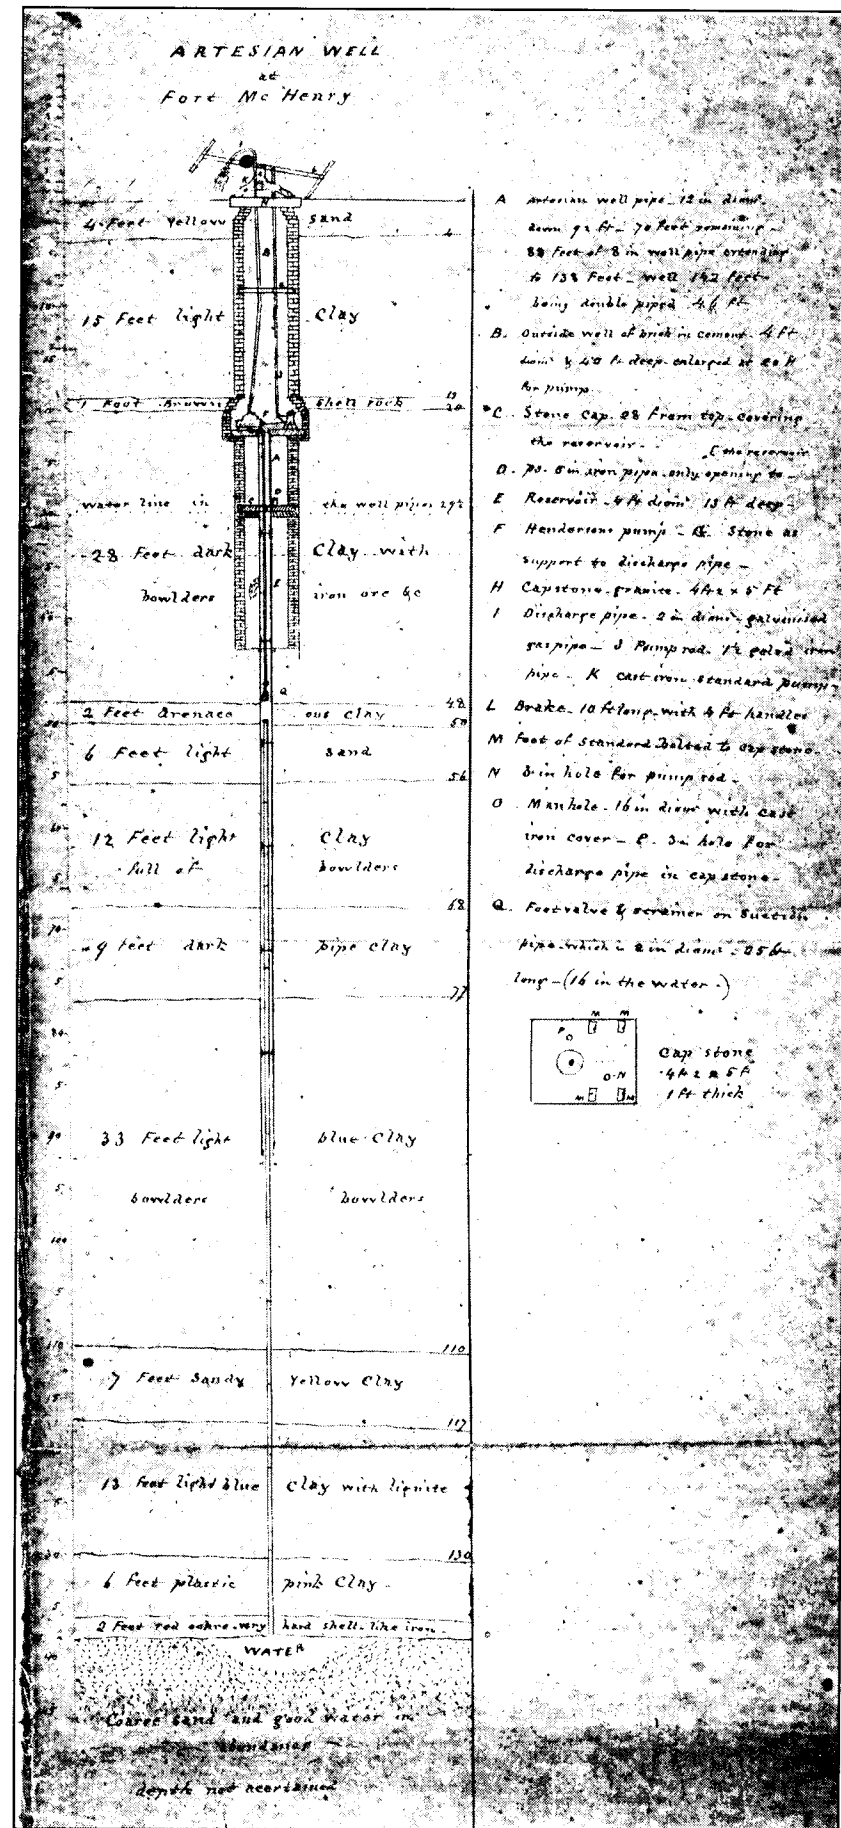 ARTESIAN WELL
at
Fort McHenry
4 Feet Yellow sand
4
15 Feet light Clay
1 Foot Brown shell rock
19
20
Water line in the well pipes 29½
28 Feet dark Clay with
bowlders iron ore &c
48
2 Feet Arenaceous Clay
50
6 Feet light sand
56
12 Feet light Clay
full of bowlders
68
9 Feet dark pipe Clay
77
33 Feet light blue Clay
bowlders bowlders
110
7 Feet Sandy Yellow Clay
117
13 Feet light blue Clay with lignite
130
6 feet plastic pink Clay
2 Feet red ochre very hard shell-like iron
WATER
Coarse sand and good water in
abundance
depth not ascertained
A Artesian well pipe 12 in diam
down 92 ft - 70 Feet remaining -
88 Feet of 8 in well pipe extending
to 138 Feet - well 142 feet -
being double piped 46 ft
B. Outside well of brick in cement 4 ft
diam & 40 ft deep enlarged at 20 ft
for pump
C. Stone Cap 28 From top covering
the reservoir - [the reservoir
D. 6 in iron pipe only opening to -
E Reservoir 4 ft diam 13 ft deep -
F Hendersons pump - G. Stone as
support to discharge pipe -
H Capstone granite 4 ft 2 x 5 Ft
I Discharge pipe 2 in diam galvanised
gas pipe - J Pump rod 1½ galvd iron
pipe - K cast iron standard pump
L Brake 10 ft long with 4 ft handles
M Foot of Standard bolted to cap stone
N 3 in hole for pump rod -
O Manhole 16 in diam with cast
iron cover - P. 3 in hole for
discharge pipe in capstone -
Q. Footvalve & strainer on suction
pipe which is 2 in diam - 25 ft
long - (16 in the water -)
M M
P
O
O N
M M
Cap stone
4 ft 2 x 5 F
1 Ft thick